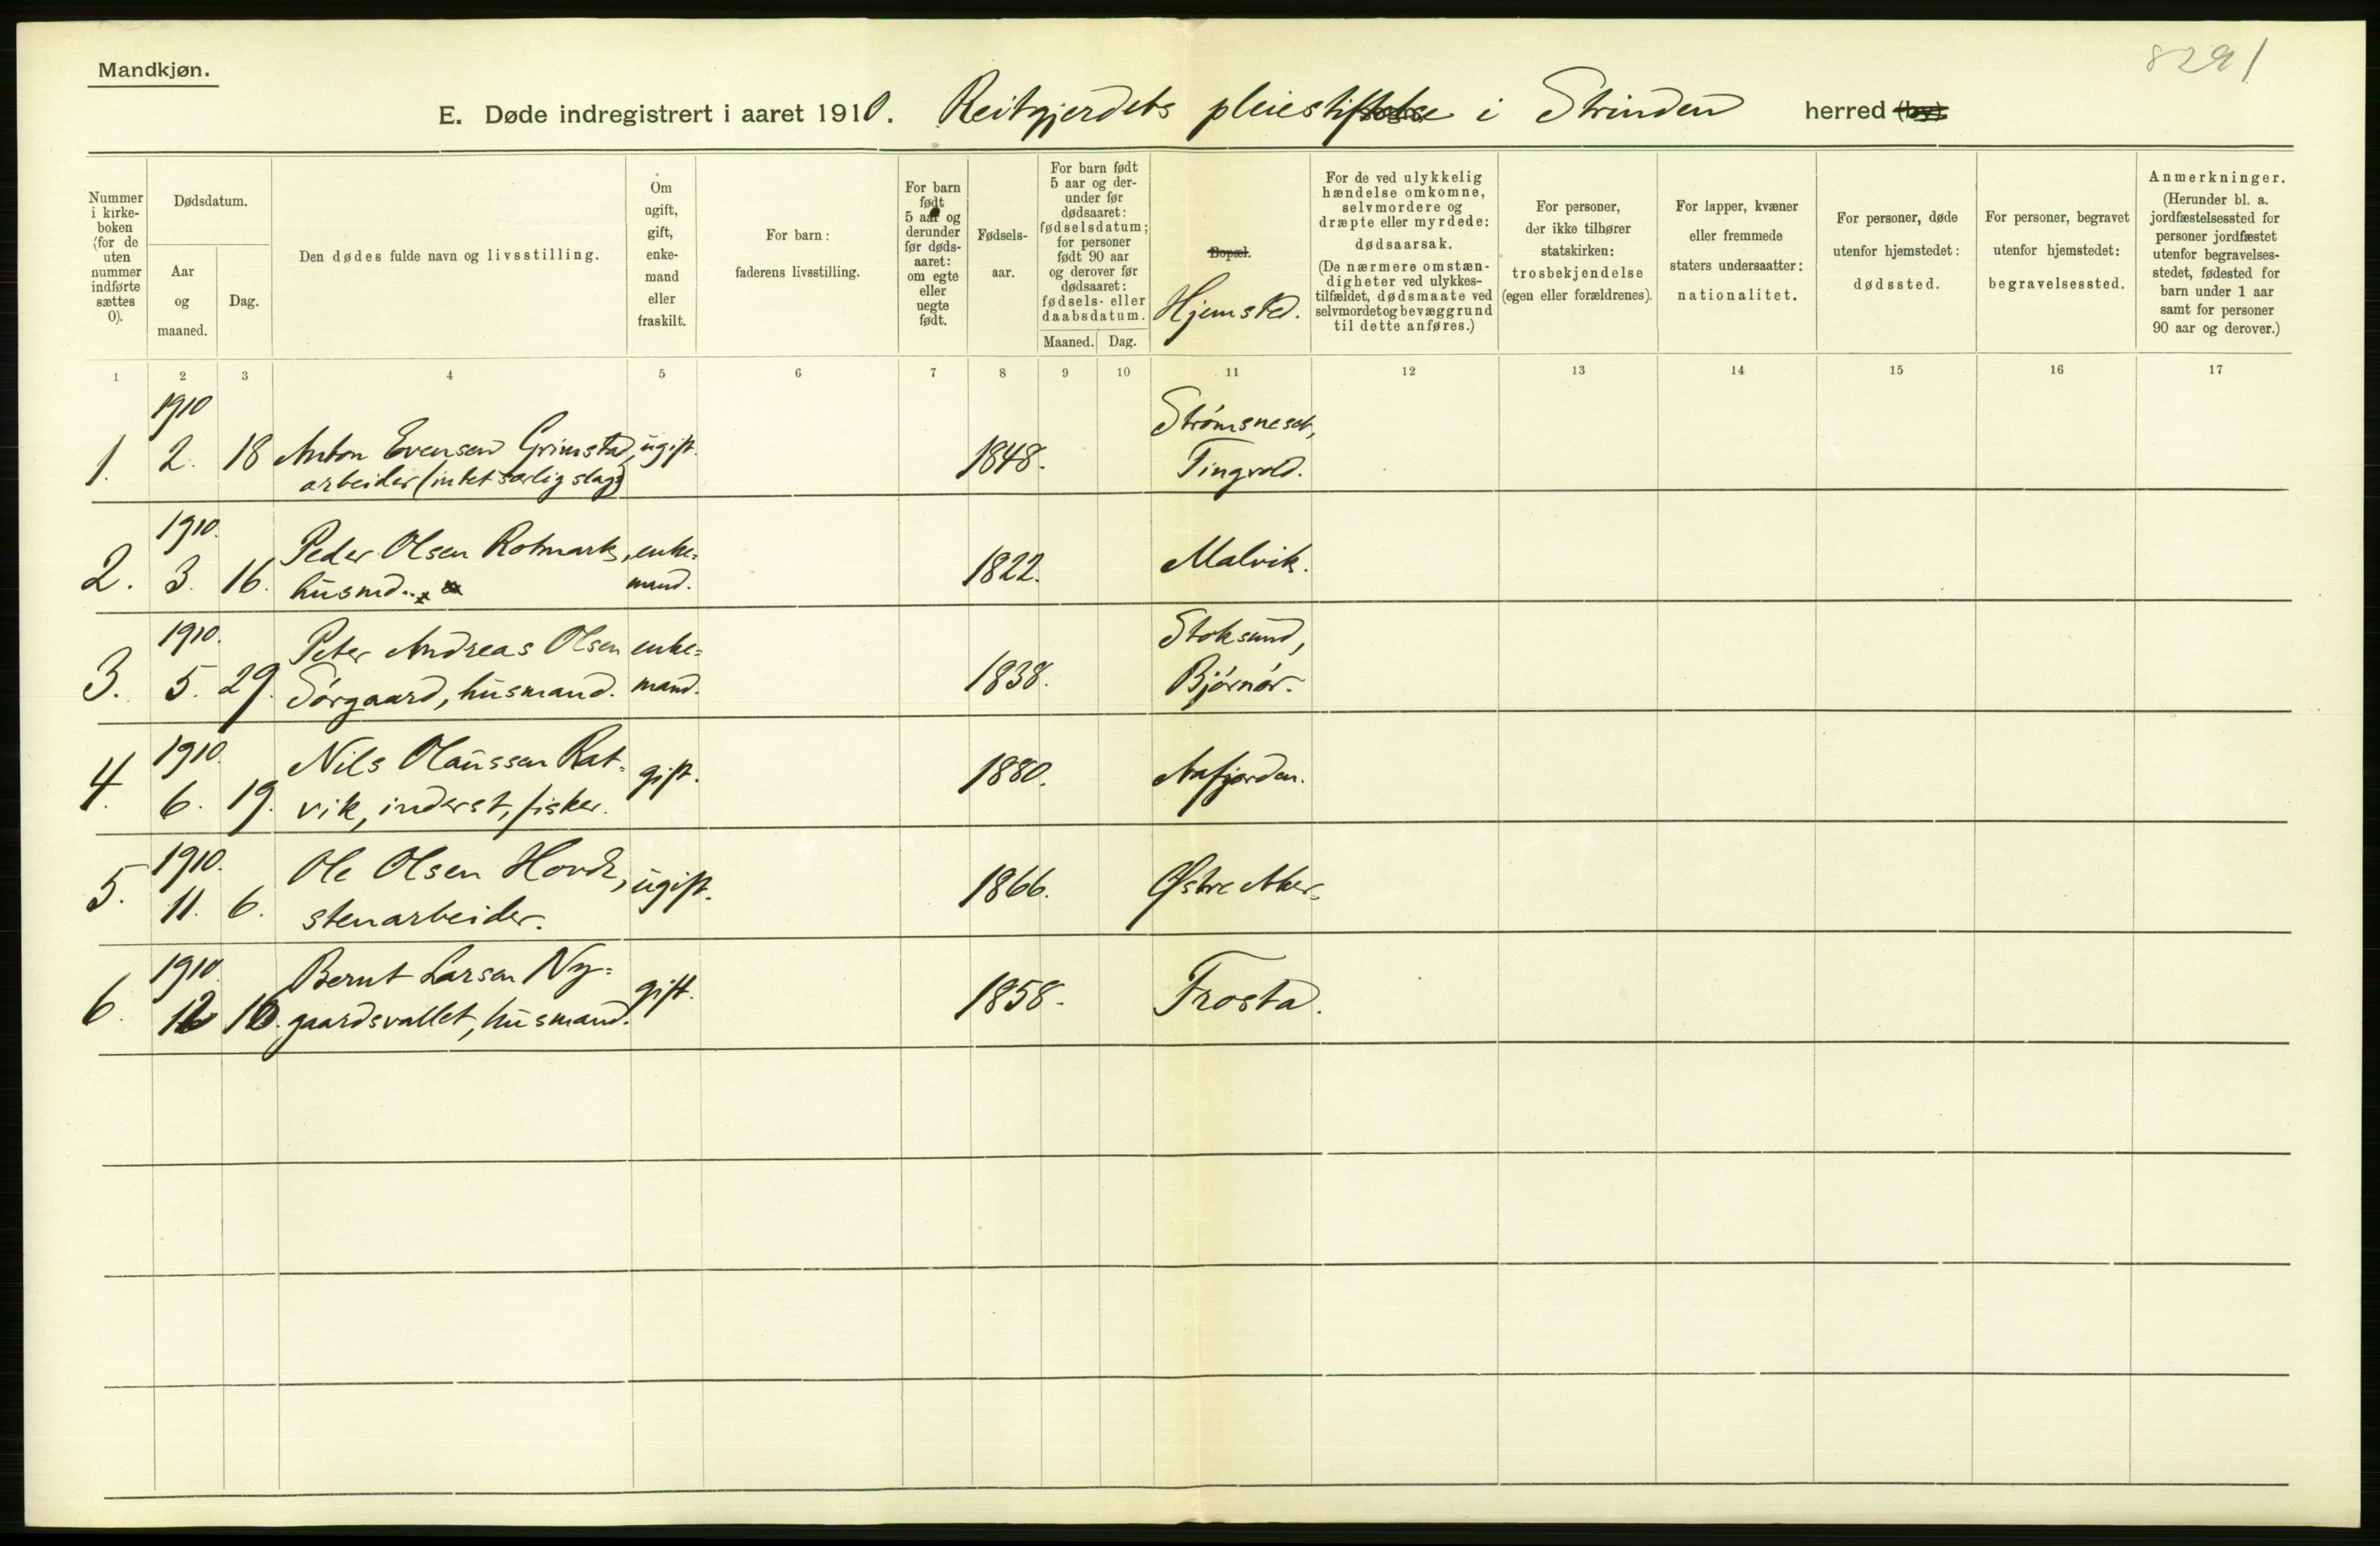 Mandkjøn.
8291
E. Døde indregistrert i aaret 1910. Reitgjerdets pleiestiftelse i Strinden herred (by).
Nummer
i kirke-
boken
(for de
uten
nummer
indførte
sættes
0).
Dødsdatum.
Aar
og
maaned.
Dag.
Den dødes fulde navn og livsstilling.
Om
ugift,
gift,
enke-
mand
eller
fraskilt.
For barn:
faderens livsstilling.
For barn
født
5 aar og
derunder
før døds-
aaret:
om egte
eller
uegte
født.
Fødsels-
aar.
For barn født
5 aar og der-
under før
dødsaaret:
fødselsdatum;
for personer
født 90 aar
og derover før
dødsaaret:
fødsels- eller
daabsdatum.
Maaned. Dag.
Bopæl.
Hjemsted.
For de ved ulykkelig
hændelse omkomne,
selvmordere og
dræpte eller myrdede:
dødsaarsak.
(De nærmere omstæn-
digheter ved ulykkes-
tilfældet, dødsmaate ved
selvmordet og bevæggrund
til dette anføres.)
For personer,
der ikke tilhører
statskirken:
trosbekjendelse
(egen eller forældrenes).
For lapper, kvæner
eller fremmede
staters undersaatter:
nationalitet.
For personer, døde
utenfor hjemstedet:
dødssted.
For personer, begravet
utenfor hjemstedet:
begravelsessted.
Anmerkninger.
(Herunder bl. a.
jordfæstelsessted for
personer jordfæstet
utenfor begravelses-
stedet, fødested for
barn under 1 aar
samt for personer
90 aar og derover.)
1 2 3 4 5 6 7 8 9 10 11 12 13 14 15 16 17
1910 Strømsneset,
1. 2. 18 Anton Evensen Grimstad, ugift. 1848. Tingvold.
arbeider (intet særlig slags)
1910. Peder Olsen Rotmark, enke=
2. 3. 16. husmd. mand. 1822. Malvik.
1910. Peter Andreas Olsen enke= Stoksund,
3. 5. 29. Sørgaard, husmand. mand. 1838. Bjørnør.
1910. Nils Olaussen Rat=
4. 6. 19. vik, inderst, fisker. gift. 1880. Aafjorden.
1910. Ole Olsen Hovde, ugift. 1866. Østre Aker.
5. 11. 6. stenarbeider.
1910. Bernt Larsen Ny=
6. 12 10. gaardsvallet, husmand. gift. 1858. Frosta.